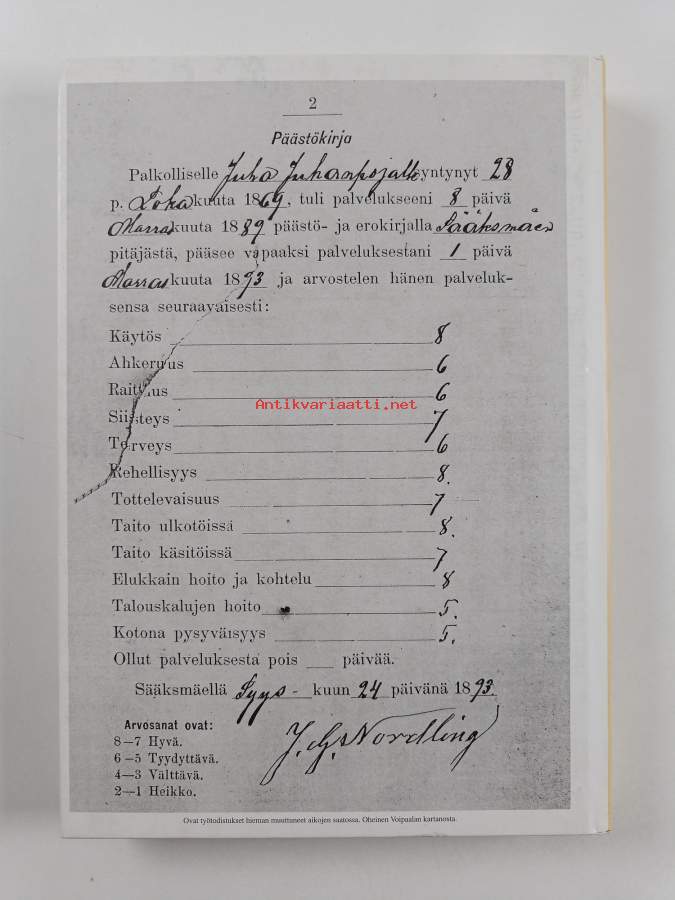 2
Päästökirja
Palkolliselle Juha Juhanpojalle syntynyt 28
p. Lokakuuta 1869, tuli palvelukseeni 8 päivä
Marraskuuta 1889 päästö- ja erokirjalla Sääksmäen
pitäjästä, pääsee vapaaksi palveluksestani 1 päivä
Marraskuuta 1893 ja arvostelen hänen palveluk-
sensa seuraavaisesti:
Käytös 8
Ahkeruus 6
Raittius 6
Siisteys 7
Terveys 6
Rehellisyys 8.
Tottelevaisuus 7
Taito ulkotöissä 8.
Taito käsitöissä 7
Elukkain hoito ja kohtelu 8
Talouskalujen hoito 5.
Kotona pysyväisyys 5.
Ollut palveluksesta pois ___ päivää.
Sääksmäellä Syys- kuun 24 päivänä 1893.
J. G. Nordling
Arvosanat ovat:
8—7 Hyvä.
6—5 Tyydyttävä.
4—3 Välttävä.
2—1 Heikko.
Ovat työtodistukset hieman muuttuneet aikojen saatossa. Oheinen Voipaalan kartanosta.
Antikvariaatti.net